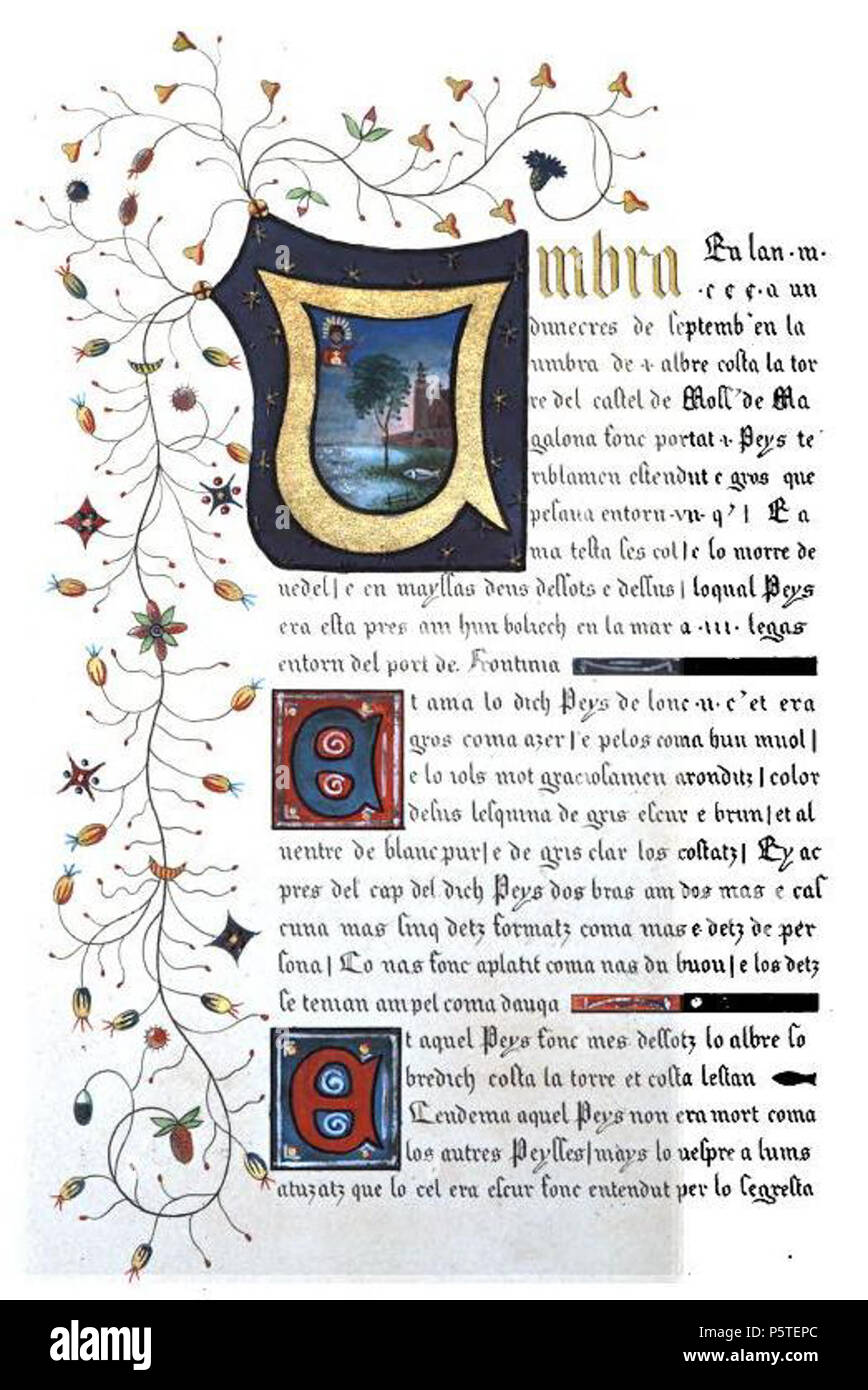 Umbra En lan · m ·
· c c c · a un
dimecres de septemb' en la
umbra de · i · albre costa la tor
re del castel de Moss' de Ma
galona fonc portat · i · Peys te
riblamen estendut e gros que
pesava entorn · vii · q' | E a
ma testa ses col | e lo morre de
uedel | e en mayssas dens dessots e dessus | loqual Peys
era esta pres am hun boliech en la mar a · iii · legas
entorn del port de Frontinia
Et ama lo dich Peys de lonc · ii · c' et era
gros coma azer | e pelos coma bun muol |
e lo iols mot graciosamen aronditz | color
desus lesquina de gris escur e brun | et al
uentre de blanc pur | e de gris clar los costatz | Ey ac
pres del cap del dich Peys dos bras am dos mas e cas
cuna mas sinq detz formatz coma mas e detz de per
sona | Lo nas fonc aplatit coma nas du buou | e los detz
se tenian am pel coma dauqa
Et aquel Peys fonc mes dessotz lo albre so
bredich costa la torre et costa lestan
Lendema aquel Peys non era mort coma
los autres Peysses | mays lo uespre a lums
atuzatz que lo cel era escur fonc entendut per lo segresta
alamy
Image ID: P5TEPC
www.alamy.com